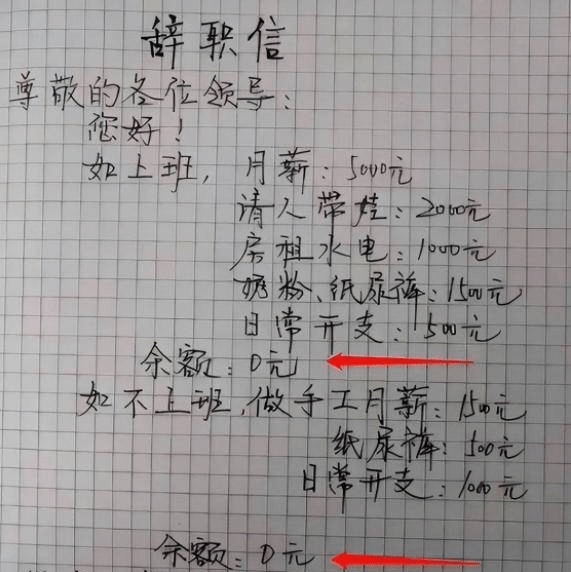 辞职信
尊敬的各位领导：
您好！
如上班，月薪：5000元
请人带娃：2000元
房租水电：1000元
奶粉、纸尿裤：1500元
日常开支：500元
余额：0元
如不上班，做手工月薪：1500元
纸尿裤：500元
日常开支：1000元
余额：0元